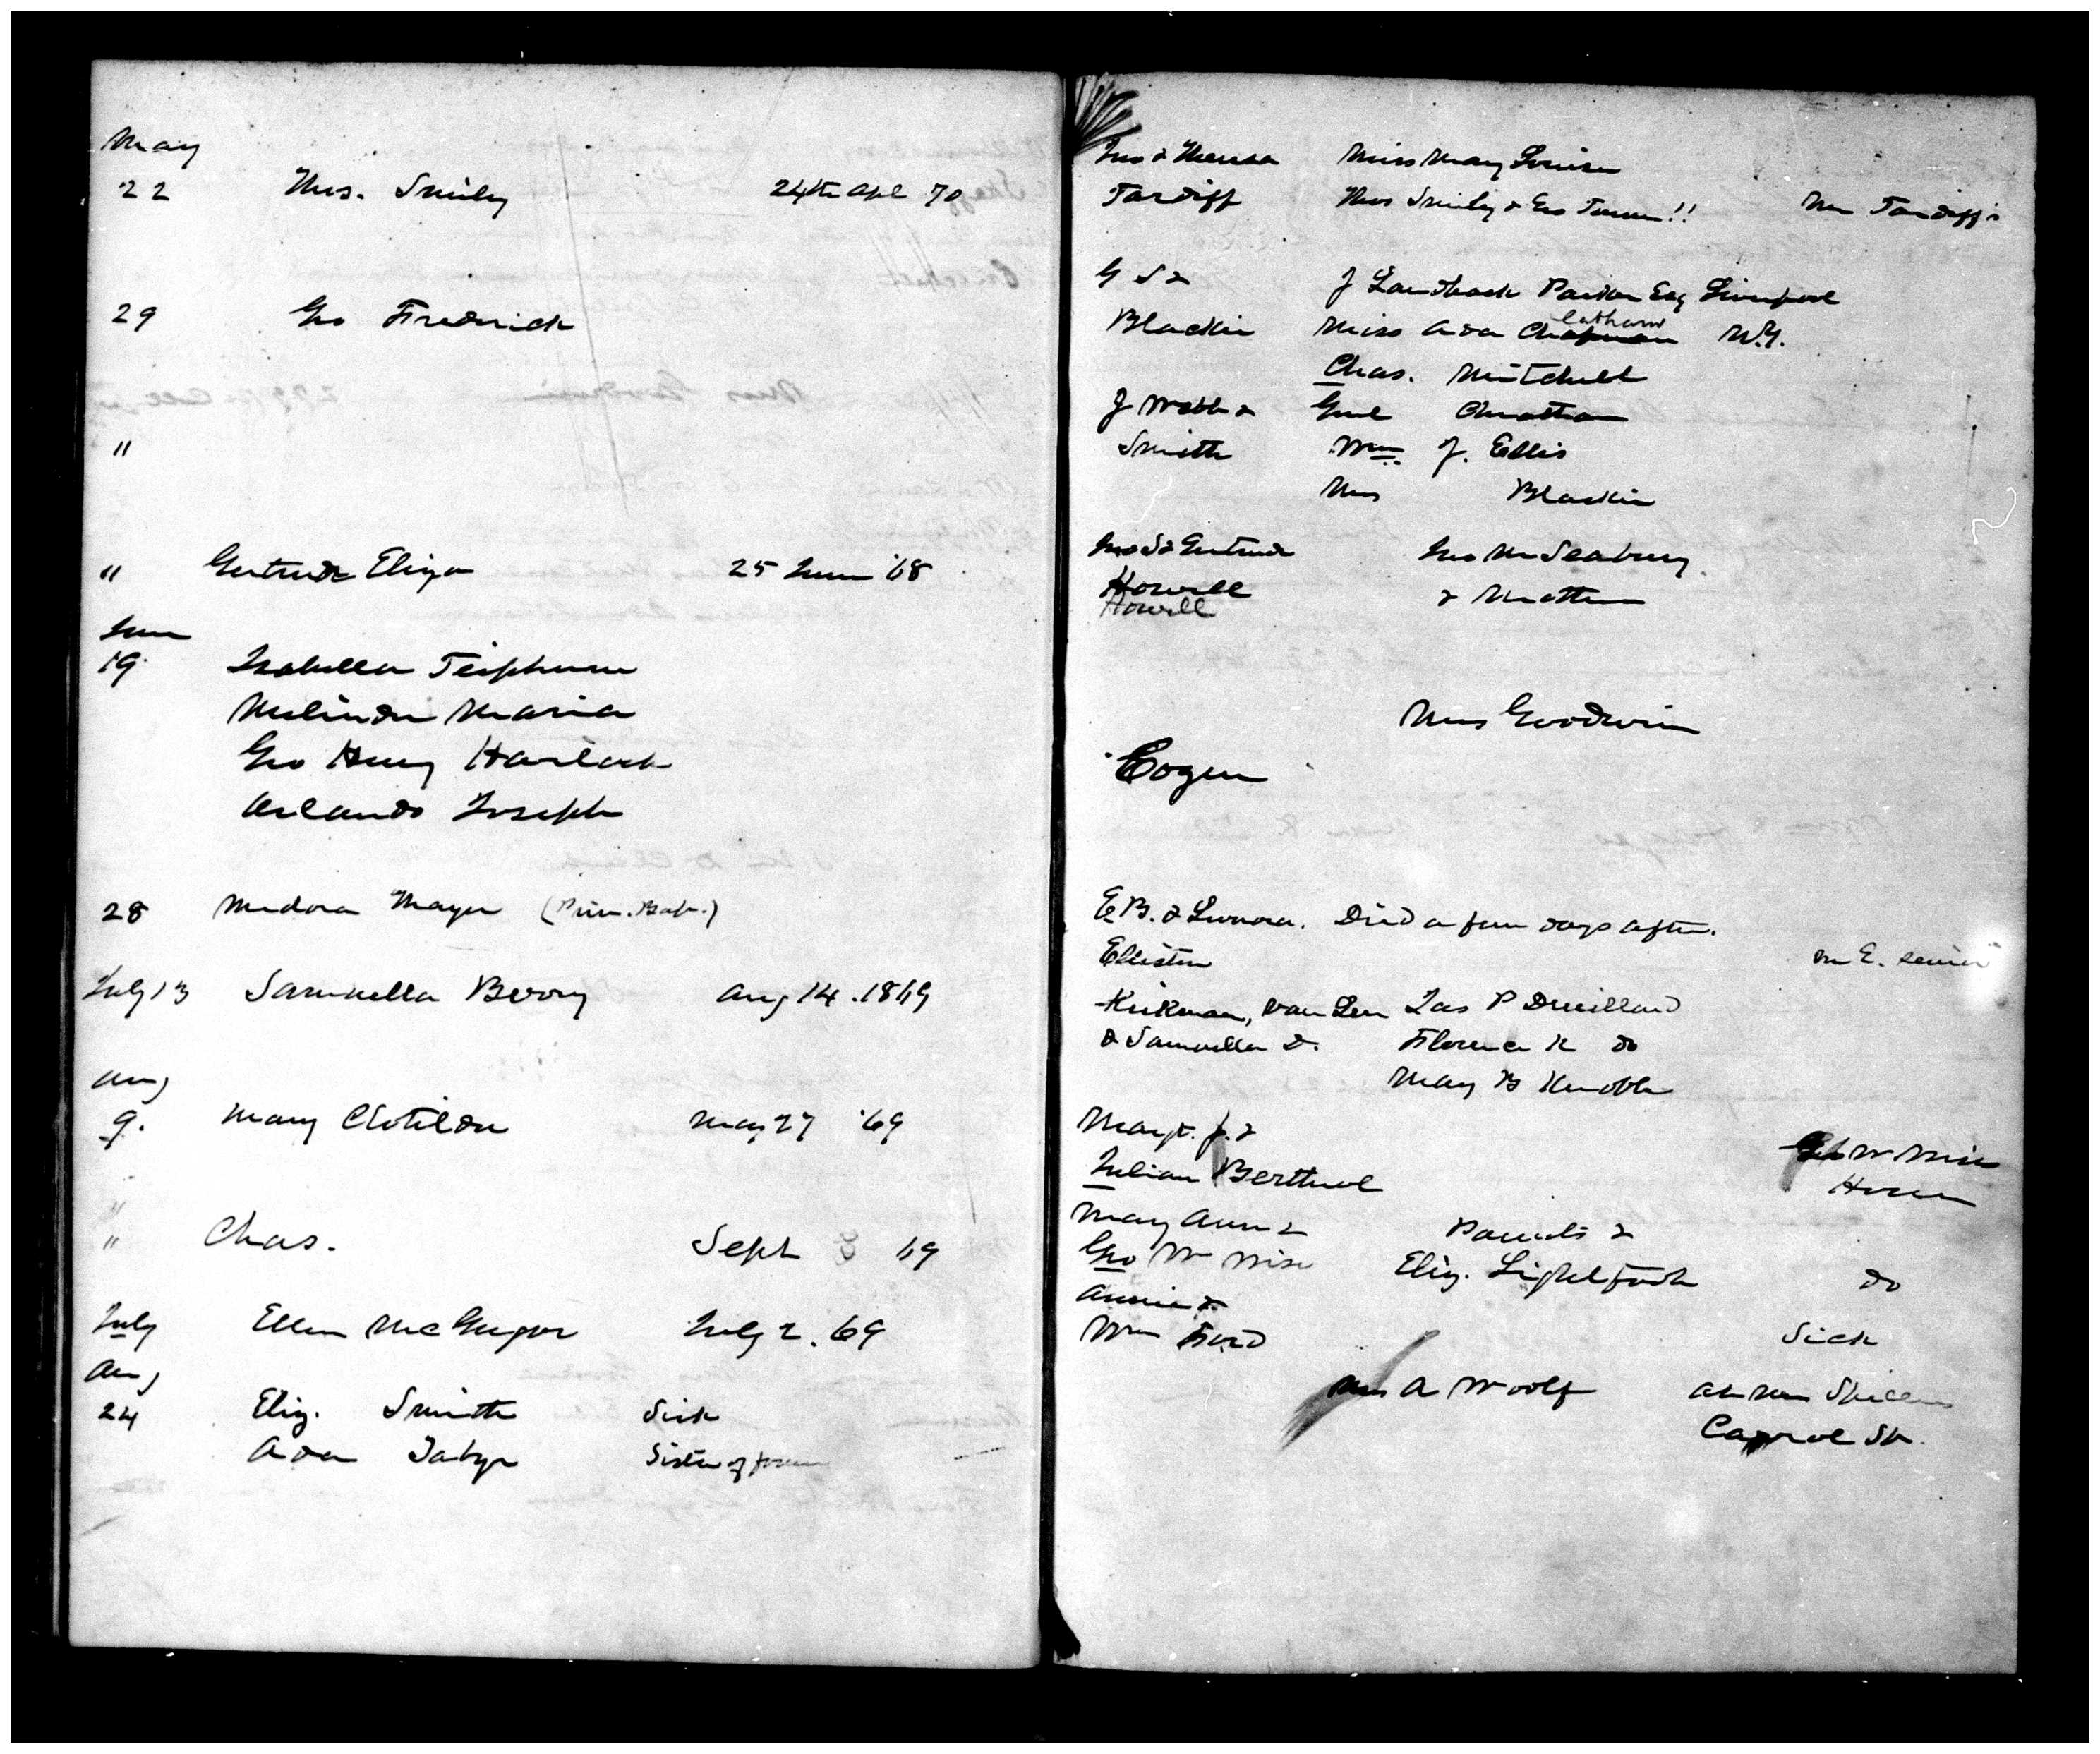 May
22 Thos. Smiley 24th Apl 70
29 Geo Frederick
"
" Gertrude Eliza 25 June '68
June
19 Isabella
Melinda Maria
Geo Henry Harlock
Orlando Joseph
28 Medora Mayer (Priv. Bap.)
July 13 Samuella Berry Aug 14. 1869
Aug
9. Mary Clotilda May 27 '69
" Chas. Sept 69
July Ellen McGregor July 2. 69
Aug
24 Eliz. Smith Sick
Ada Sister of
Jno & Theresa Miss Mary Louisa
Tardiff Thos Smiley & Geo !! Mr Tardiff's
G S & J Parker Esq Liverpool
Latham
Blackie Miss Ada Chapman N.Y.
Chas. Mitchell
J Webb &
Smith Wm J. Ellis
Mrs Blackie
Jno S & Gertrude Jno M Seabury
Howell & Mother
Howell
Mrs Goodwin
Cogen
E B. & Leonora. Died a few days after.
Elliston Mr E. senior
Kirkman, Van Leer Jas P Drouillard
& Samuella D. Florence K do
Mary B
Margt. J. &
Julian Berthol Geo W Wise
House
Mary Ann & Parents &
Geo W Wise Eliz. Lightfoot do
Annie &
Wm Ford Sick
Mrs A Woolf at Mrs
Carrol St.